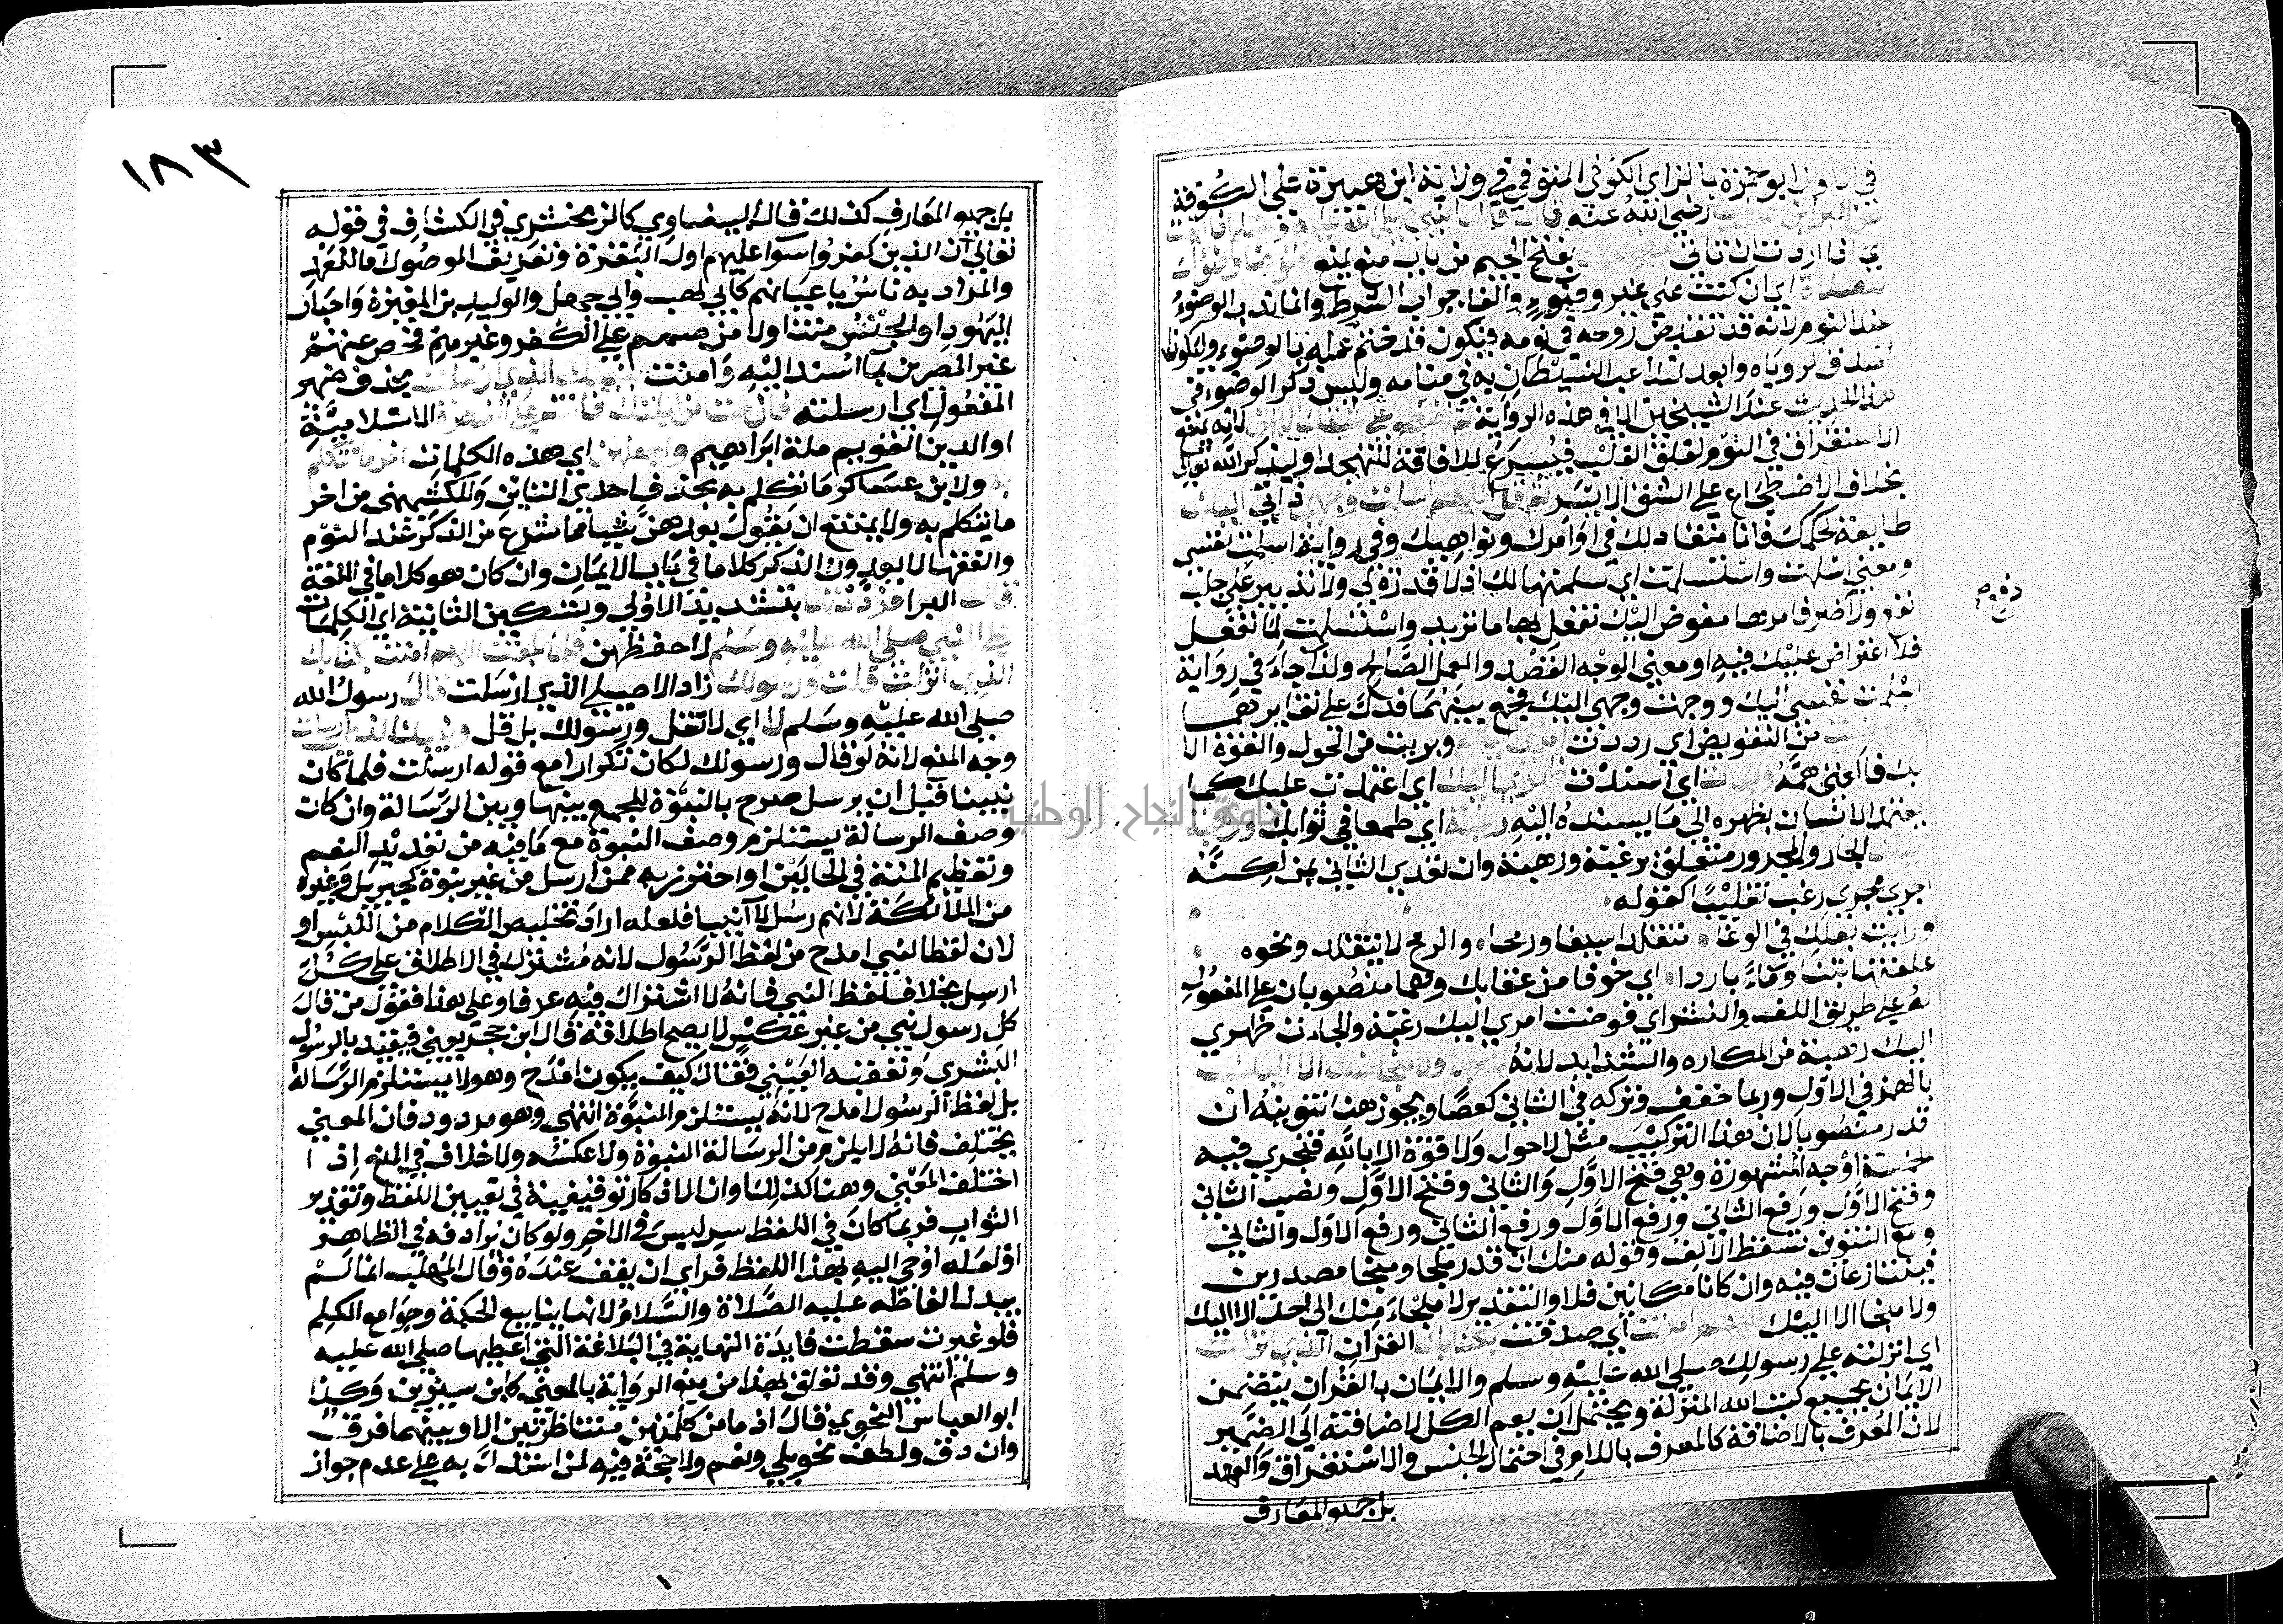 في الاول ابو حمزة بالزاي الكوفي المتوفى في ولاية ابن هبيرة على الكوفة
عن البراء بن عازب رضي الله عنه قال قال النبي صلى الله عليه وسلم اذا اتيت
اي اذا اردت ان تاتي بفتح الجيم من باب منع يمنع فتوضا وضوك
للصلاة اي ان كنت على غير وضوء والفاء جواب الشرط وانما ندب الوضوء
عند النوم لانه قد تقبض روحه في نومه فيكون قد ختم عمله بالوضوء وليكون
اصدق لروياه وابعد لتلاعب الشيطان به في منامه وليس ذكر الوضوء في
هذا الحديث عند الشيخين الا في هذه الرواية ثم اضطجع على شقك الايمن لانه يمنع
الاستغراق في النوم لقلق القلب فيسرع الافاقة للتهجد او ليذكر الله تعالى
بخلاف الاضطجاع على الشق الايسر ثم قل اللهم اسلمت وجهي ذاتي اليك
طايعة لحكمك فانا منقاد لك في اوامرك ونواهيك وفي رواية اسلمت نفسي
ومعنى اسلمت واستسلمت اي سلمتها لك اذ لا قدرة لي ولا تدبير على جلب
نفع ولا ضر فامرها مفوض اليك تفعل بها ما تريد واستسلمت لما تفعل
دفع صح
فلا اعتراض عليك فيه او معنى الوجه القصد والعمل الصالح ولذا جاء في رواية
اسلمت نفسي اليك ووجهت وجهي اليك فجمع بينهما فدل على تغايرهما
وفوضت من التفويض اي رددت امري اليك وبريت من الحول والقوة الا
بك فاكفني همه والجات اي اسندت ظهري اليك اي اعتمدت عليك كما
يعتمد الانسان بظهره الى ما يسنده اليه رغبة اي طمعا في ثوابك ورهبة
اليك الجار والمجرور متعلق برغبة ورهبة وان تعدى الثاني بمن لكنه
اجرى مجرى رغب تغليبا كقوله
ورايت بعلك في الوغا متقلدا سيفا ورمحا والرمح لا يتقلد ونحوه
علفتها تبنا وماء باردا اي خوفا من عقابك وهما منصوبان على المفعول
له على طريق اللف والنشر اي فوضت امري اليك رغبة والجات ظهري
اليك رهبة من المكاره والشدايد لانه لا ملجا ولا منجى منك الا اليك
بالهمز في الاول وربما خفف وتركه في الثاني كعصا ويجوز هنا تنوينه ان
قدر منصوبا لان هذا التركيب مثل لا حول ولا قوة الا بالله فتجري فيه
الخمسة اوجه المشهورة وهي فتح الاول والثاني وفتح الاول ونصب الثاني
وفتح الاول ورفع الثاني ورفع الاول ورفع الثاني ورفع الاول والثاني
ومع التنوين تسقط الالف وقوله منك ان قدر ملجا ومنجا مصدرين
فيتنازعان فيه وان كانا مكانين فلا والتقدير لا ملجاء منك الى احد الا اليك
ولا منجا الا اليك اللهم امنت اي صدقت بكتابك القران الذي انزلت
اي انزلته على رسولك صلى الله عليه وسلم والايمان بالقران يتضمن
الايمان بجميع كتب الله المنزلة ويحتمل ان يعم الكل لاضافته الى الضمير
لان المعرف بالاضافة كالمعرف باللام في احتمال الجنس والاستغراق والعهد
بل جميع المعارف
١٨٣
بل جميع المعارف كذلك قال البيضاوي كالزمخشري في الكشاف في قوله
تعالى ان الذين كفروا سوا عليهم اول البقرة وتعريف الموصول اما للعهد
والمراد به ناس باعيانهم كابي لهب وابي جهل والوليد بن المغيرة واحبار
اليهود او الجنس متناولا من صمم على الكفر وغيرهم فخص عنهم
غير المصرين بما اسند اليه وامنت بنبيك الذي ارسلت بحذف ضمير
المفعول اي ارسلته فان مت من ليلتك فانت على الفطرة الاسلامية
او الدين القويم ملة ابراهيم واجعلهن اي هذه الكلمات اخر ما تتكلم
به ولابن عساكر ما تكلم به بحذف احدى التاين وللكشميهني من اخر
ما يتكلم به ولا يمتنع ان يقول بعدهن شيئا مما شرع من الذكر عند النوم
والفقها لا يعدون الذكر كلاما في باب الايمان وان كان هو كلاما في اللغة
قال البرا فرددتها بتشديد الاولى وتسكين الثانية اي الكلمات
على النبي صلى الله عليه وسلم لاحفظهن فلما بلغت اللهم امنت بكتابك
الذي انزلت قلت ورسولك زاد الاصيلي الذي ارسلت قال رسول الله
صلى الله عليه وسلم لا اي لا تقل ورسولك بل قل ونبيك الذي ارسلت
وجه المنع لانه لو قال ورسولك لكان تكرارا مع قوله ارسلت فلما كان
نبيا قبل ان يرسل صرح بالنبوة للجمع بينها وبين الرسالة وان كان
وصف الرسالة يستلزم وصف النبوة مع ما فيه من تعديد النعم
وتعظيم المنة في الحالين او احترز به ممن ارسل من غير نبوة كجبريل وغيره
من الملائكة لانهم رسل لا انبيا فلعله اراد تخليص الكلام من اللبس او
لان لفظ النبي امدح من لفظ الرسول لانه مشترك في الاطلاق على كل
ارسل بخلاف لفظ النبي فانه لا اشتراك فيه عرفا وعلى هذا فقول من قال
كل رسول نبي من غير عكس لا يصح اطلاقه قال ابن حجر يعني فيقيد بالرسول
البشري وتعقبه العيني فقال كيف يكون امدح وهو لا يستلزم الرسالة
بل لفظ الرسول امدح لانه يستلزم النبوة انتهى وهو مردود فان المعنى
يختلف فانه لا يلزم من الرسالة النبوة ولا عكسه ولا خلاف في المنع اذا
اختلف المعنى وهنا كذلك وان الاذكار توقيفية في تعيين اللفظ وتقدير
الثواب فربما كان في اللفظ سر ليس في الاخر ولو كان يرادفه في الظاهر
او لعله اوحي اليه بهذا اللفظ فراى ان يقف عنده وقال المهلب انما لم
يبدل الفاظه عليه الصلاة والسلام لانها ينابيع الحكمة وجوامع الكلم
فلو غيرت سقطت فايدة النهاية في البلاغة التي اعطيها صلى الله عليه
وسلم انتهى وقد تعلق بهذا من منع الرواية بالمعنى كابن سيرين وكذا
ابو العباس النحوي قال اذ ما من كلمتين متناظرتين الا وبينهما فرق
وان دق ولطف نحو بلى ونعم ولا حجة فيه لمن استدل به على عدم جواز
جامعة النجاح الوطنية